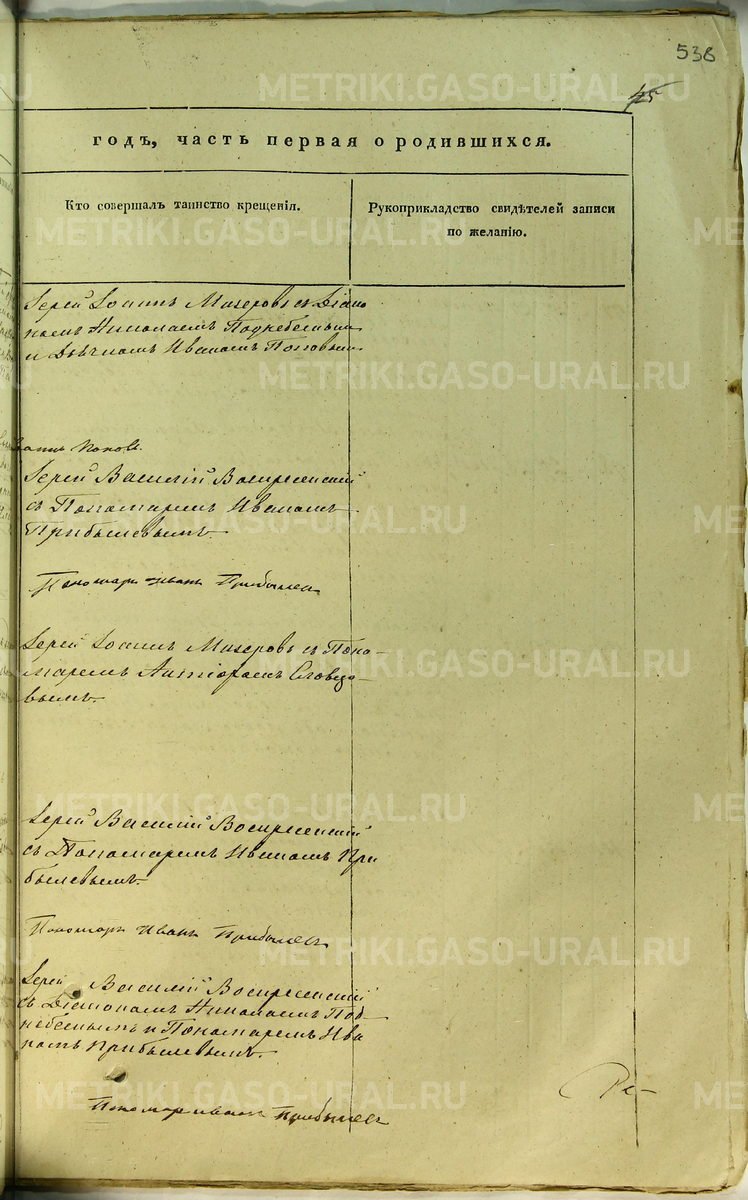 538
45
METRIKI.GASO-URAL.RU
годъ, часть первая о родившихся.
Кто совершалъ таинство крещенія.
Рукоприкладство свидѣтелей записи
по желанію.
Іерей Іоаннъ Мизеровъ съ Діако
номъ Николаемъ Поднебеснымъ
и Дьячкомъ Иваномъ Поповымъ
Іерей Василій Воскресенскій
съ Пономаремъ Иваномъ
Прибылевымъ.
Пономарь Иванъ Прибылев
Іерей Іоаннъ Мизеровъ съ Поно-
маремъ
вымъ.
Іерей Василій Воскресенскій
съ Пономаремъ Иваномъ При
былевымъ.
Пономарь Иванъ Прибылевъ
Іерей Василій Воскресенскій
съ Діакономъ Николаемъ Под-
небеснымъ и Пономаремъ Ива
номъ Прибылевымъ.
Пономарь Иванъ Прибылев
Ре-